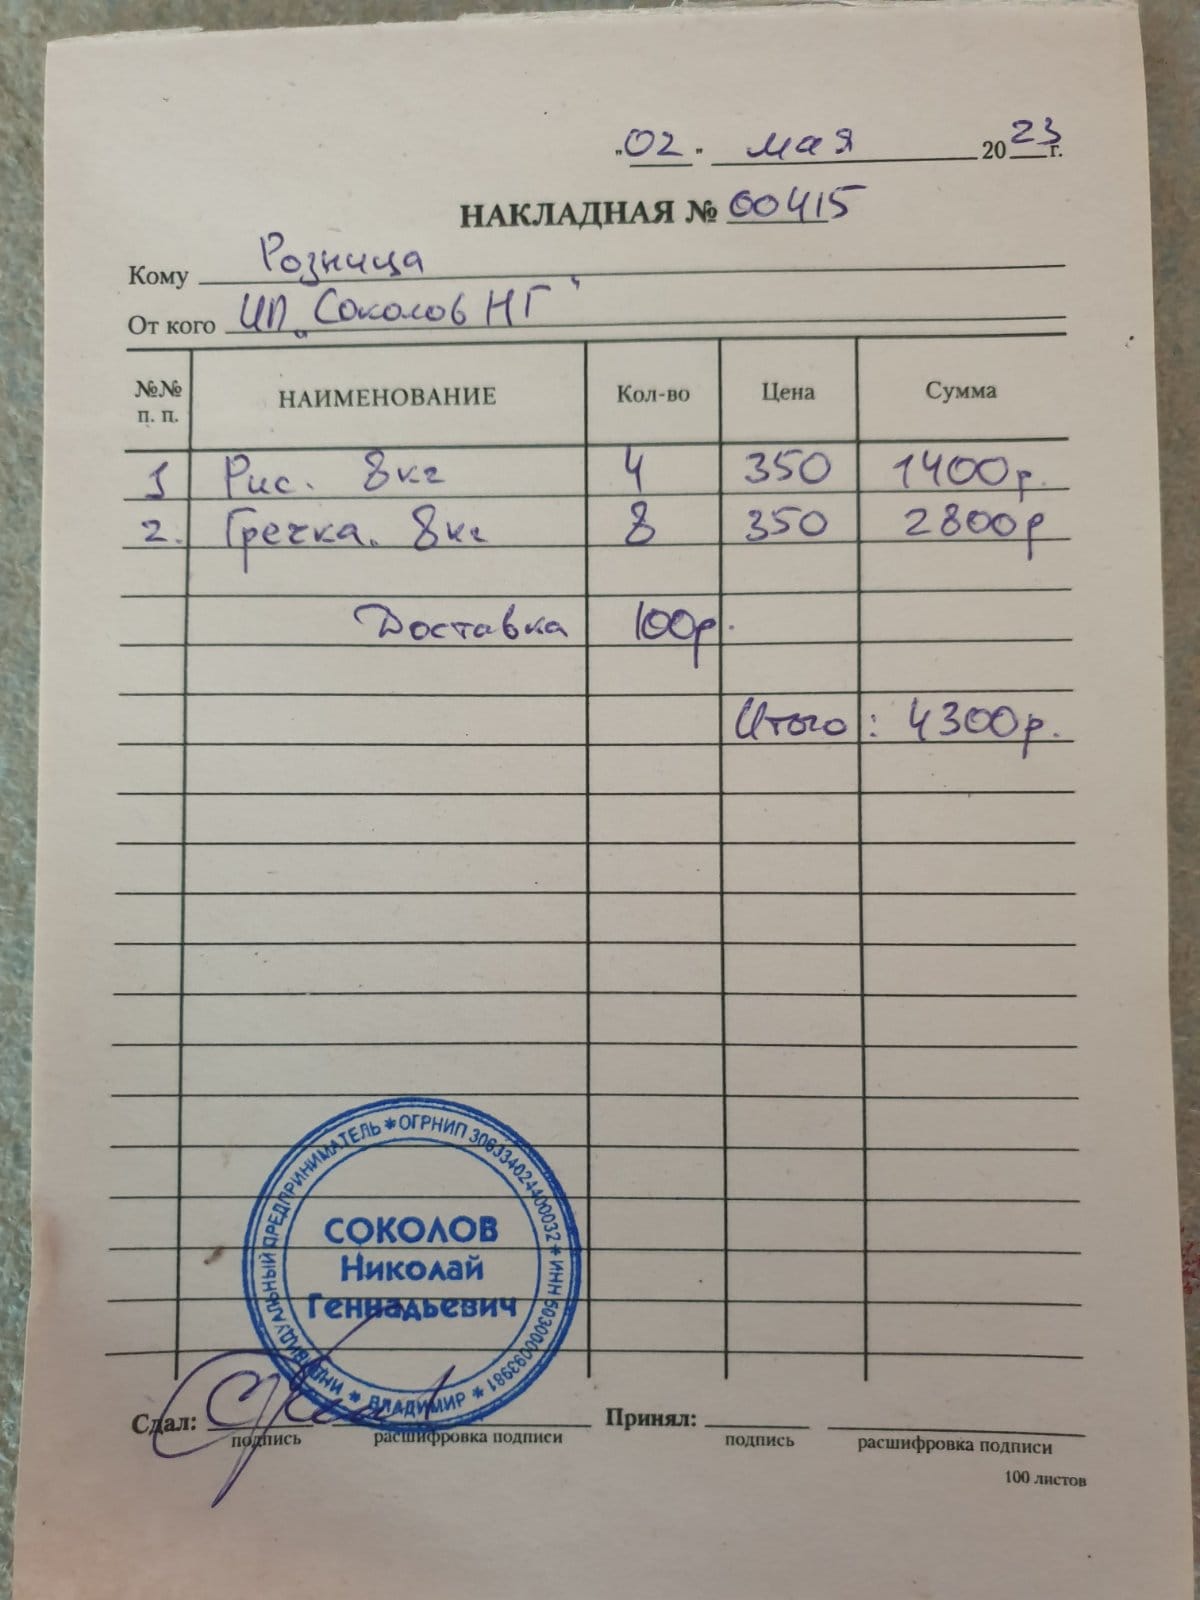 "02" мая 2023 г.
НАКЛАДНАЯ № 00415
Кому Розница
От кого ИП „Соколов НГ"
№№ п. п. НАИМЕНОВАНИЕ Кол-во Цена Сумма
1 Рис. 8кг 4 350 1400р.
2. Гречка. 8кг 8 350 2800р
Доставка 100р.
Итого: 4300р.
ИНДИВИДУАЛЬНЫЙ ПРЕДПРИНИМАТЕЛЬ * ОГРНИП 306334024400032 * ИНН 503000093981 * ВЛАДИМИР *
СОКОЛОВ
Николай
Геннадьевич
Сдал: Принял:
подпись расшифровка подписи подпись расшифровка подписи
100 листов